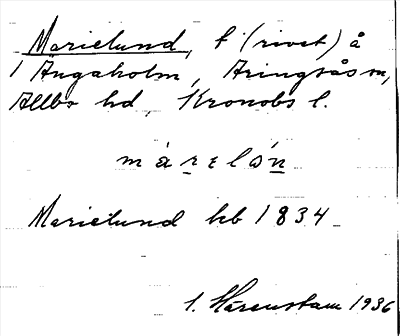 Marielund, t (rivet) å
1 Ängaholm, Aringsås sn,
Allbo hd, Kronobs l.
má rel ón
Marielund hb 1834
1. Hårenstam 1936